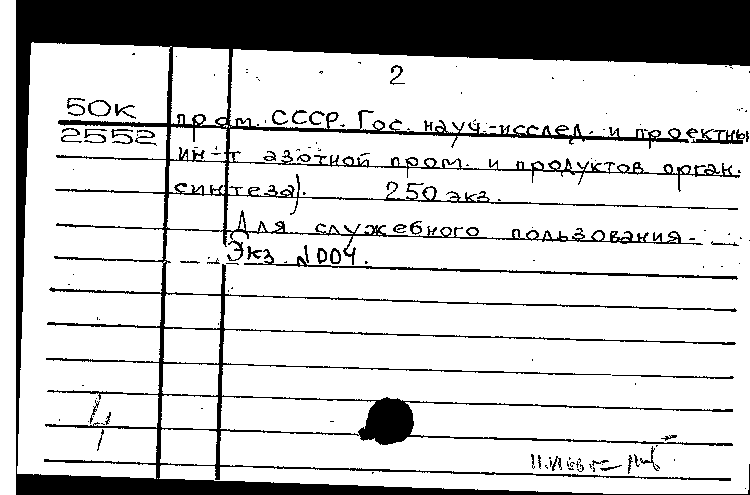 2
50К
2552
пром. СССР. Гос. науч.-исслед. и проектны
ин-т азотной пром. и продуктов орган.
синтеза).   250 экз.
Для служебного пользования.
Экз. №004.
4